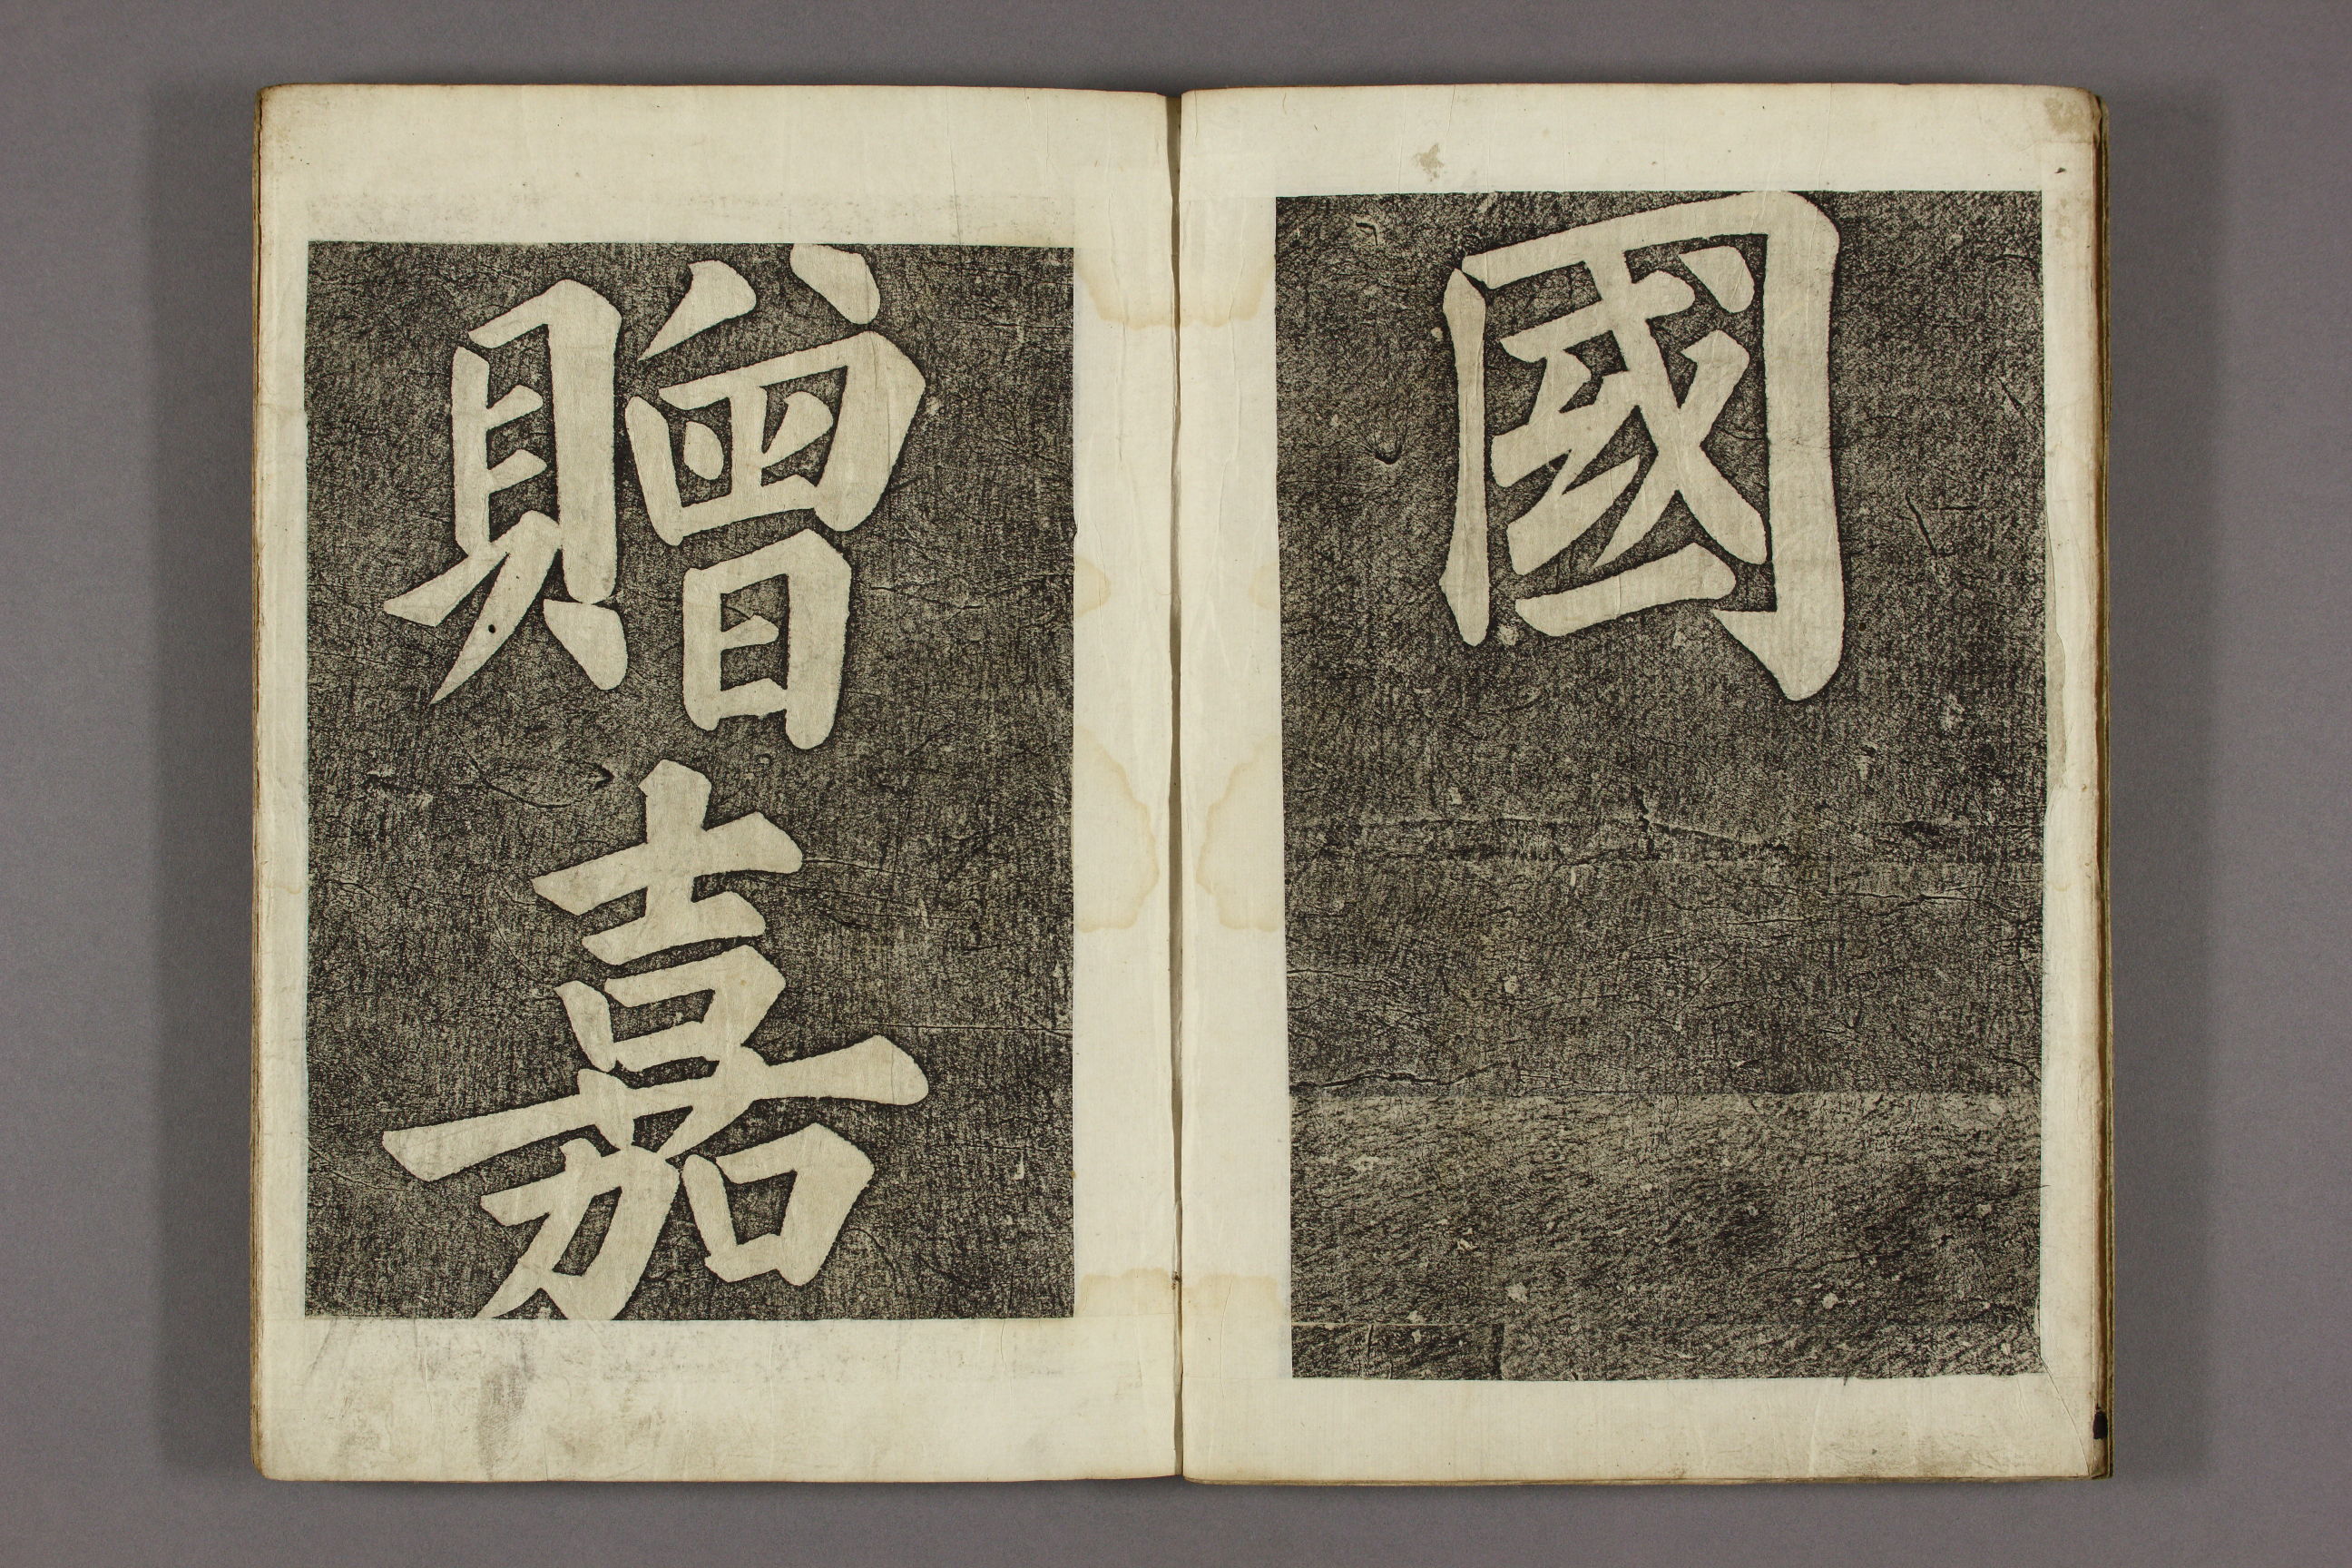 國
贈嘉